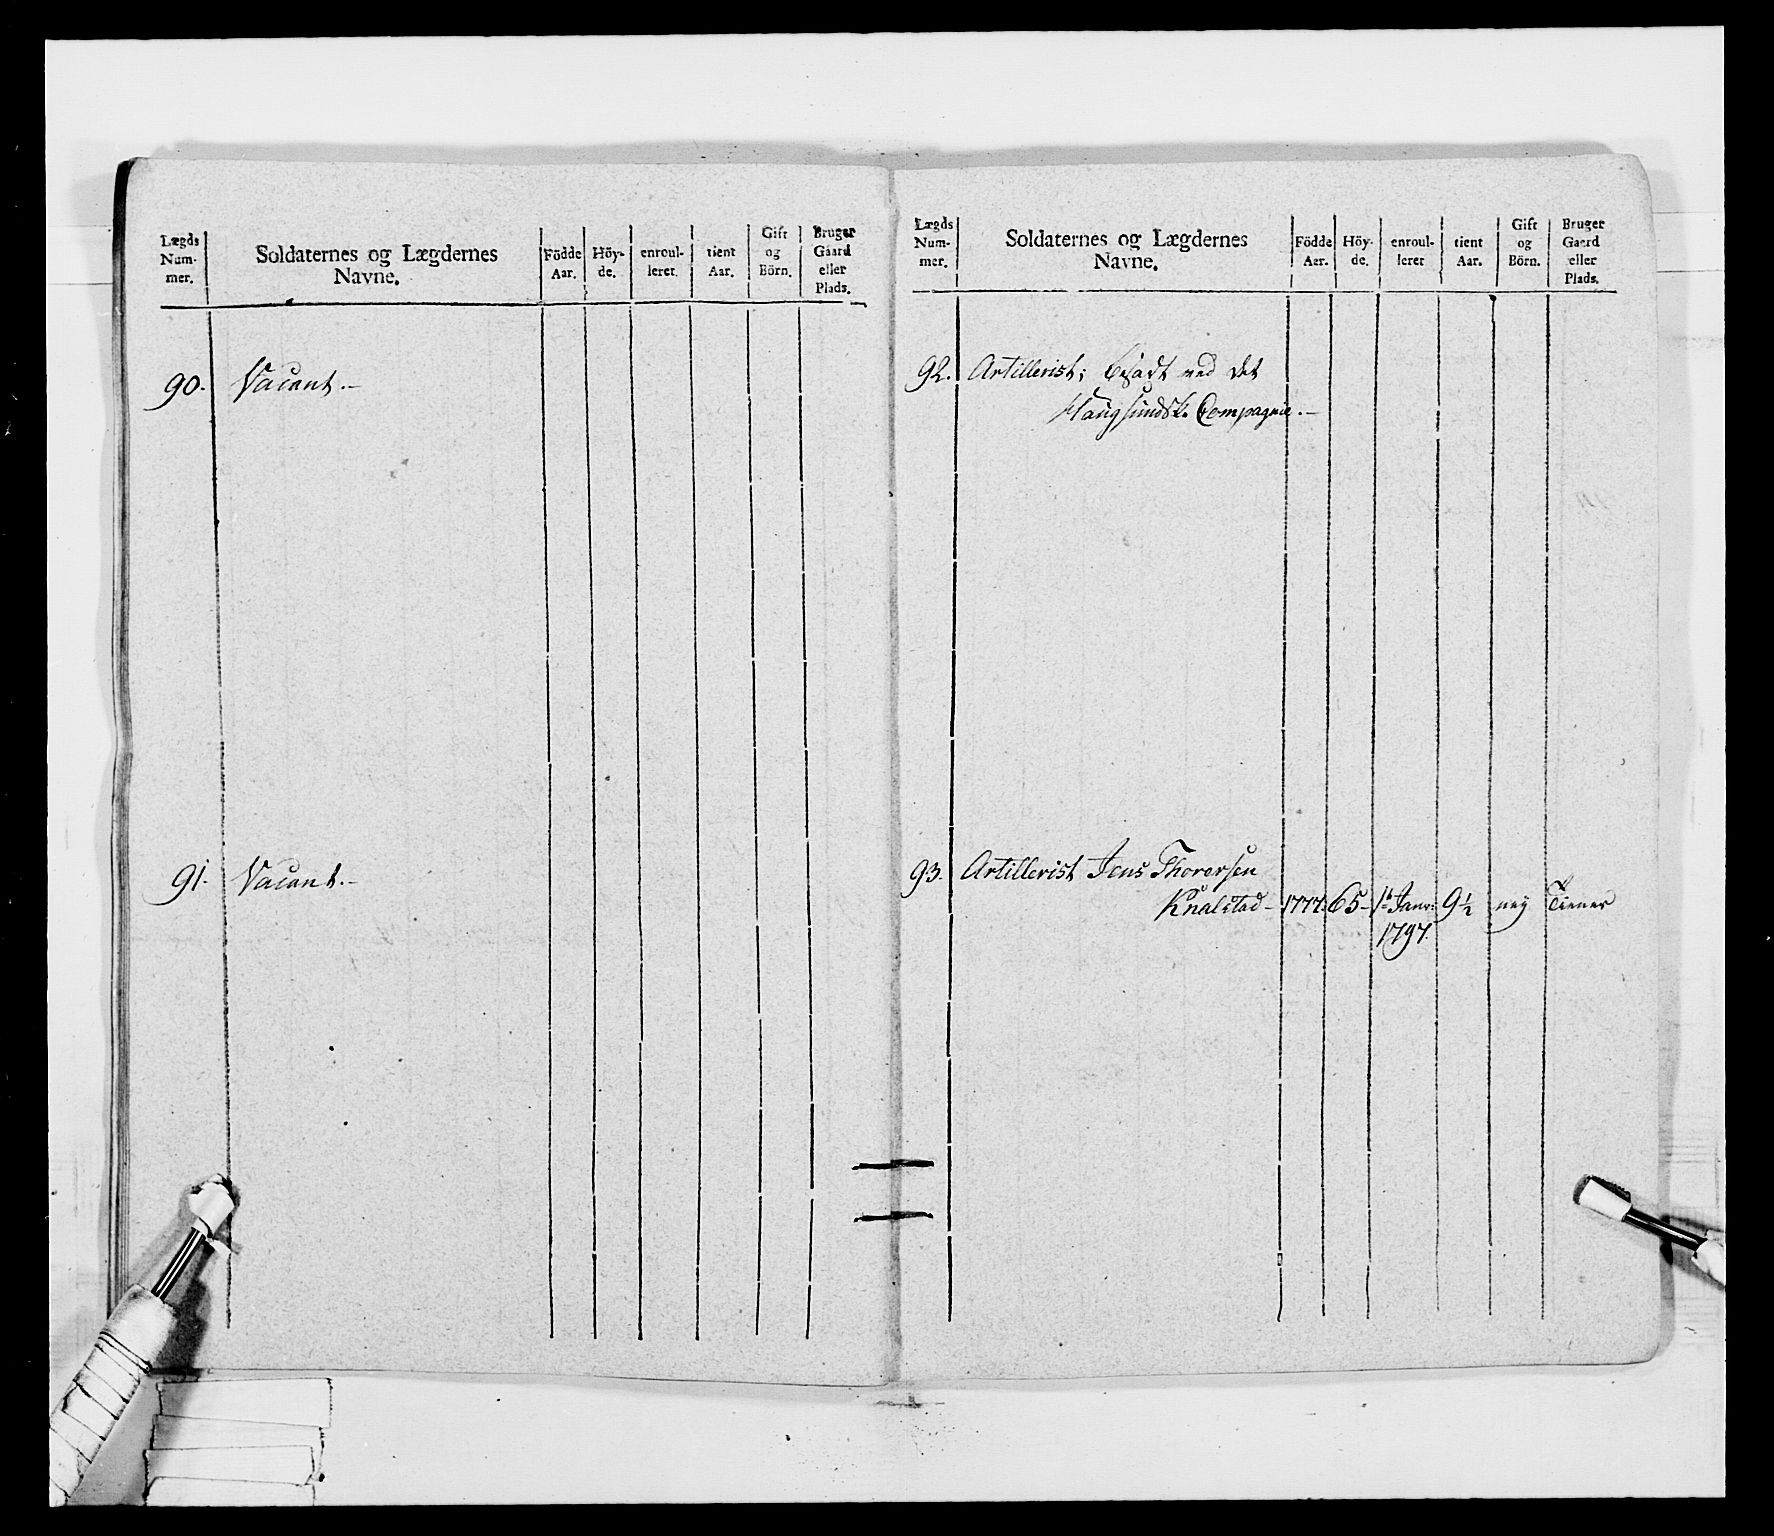 Lægds Num- mer. Soldaternes og Lægdernes Navne. Födde Aar. Höy- de. enroul- leret. tient Aar. Gift og Börn. Bruger Gaard eller Plads.
90. Vacant.-
91. Vacant.-
Lægds Num- mer. Soldaternes og Lægdernes Navne. Födde Aar. Höy- de. enroul- leret tient Aar. Gift og Börn. Bruger Gaard eller Plads.
92. Artillerist; besadt ved det
Haugsundske Compagnie.-
93. Artillerist Jens Thorersen
Knalstad- 1777. 65- 1te Janr: 9½ ney Tiener
1797.